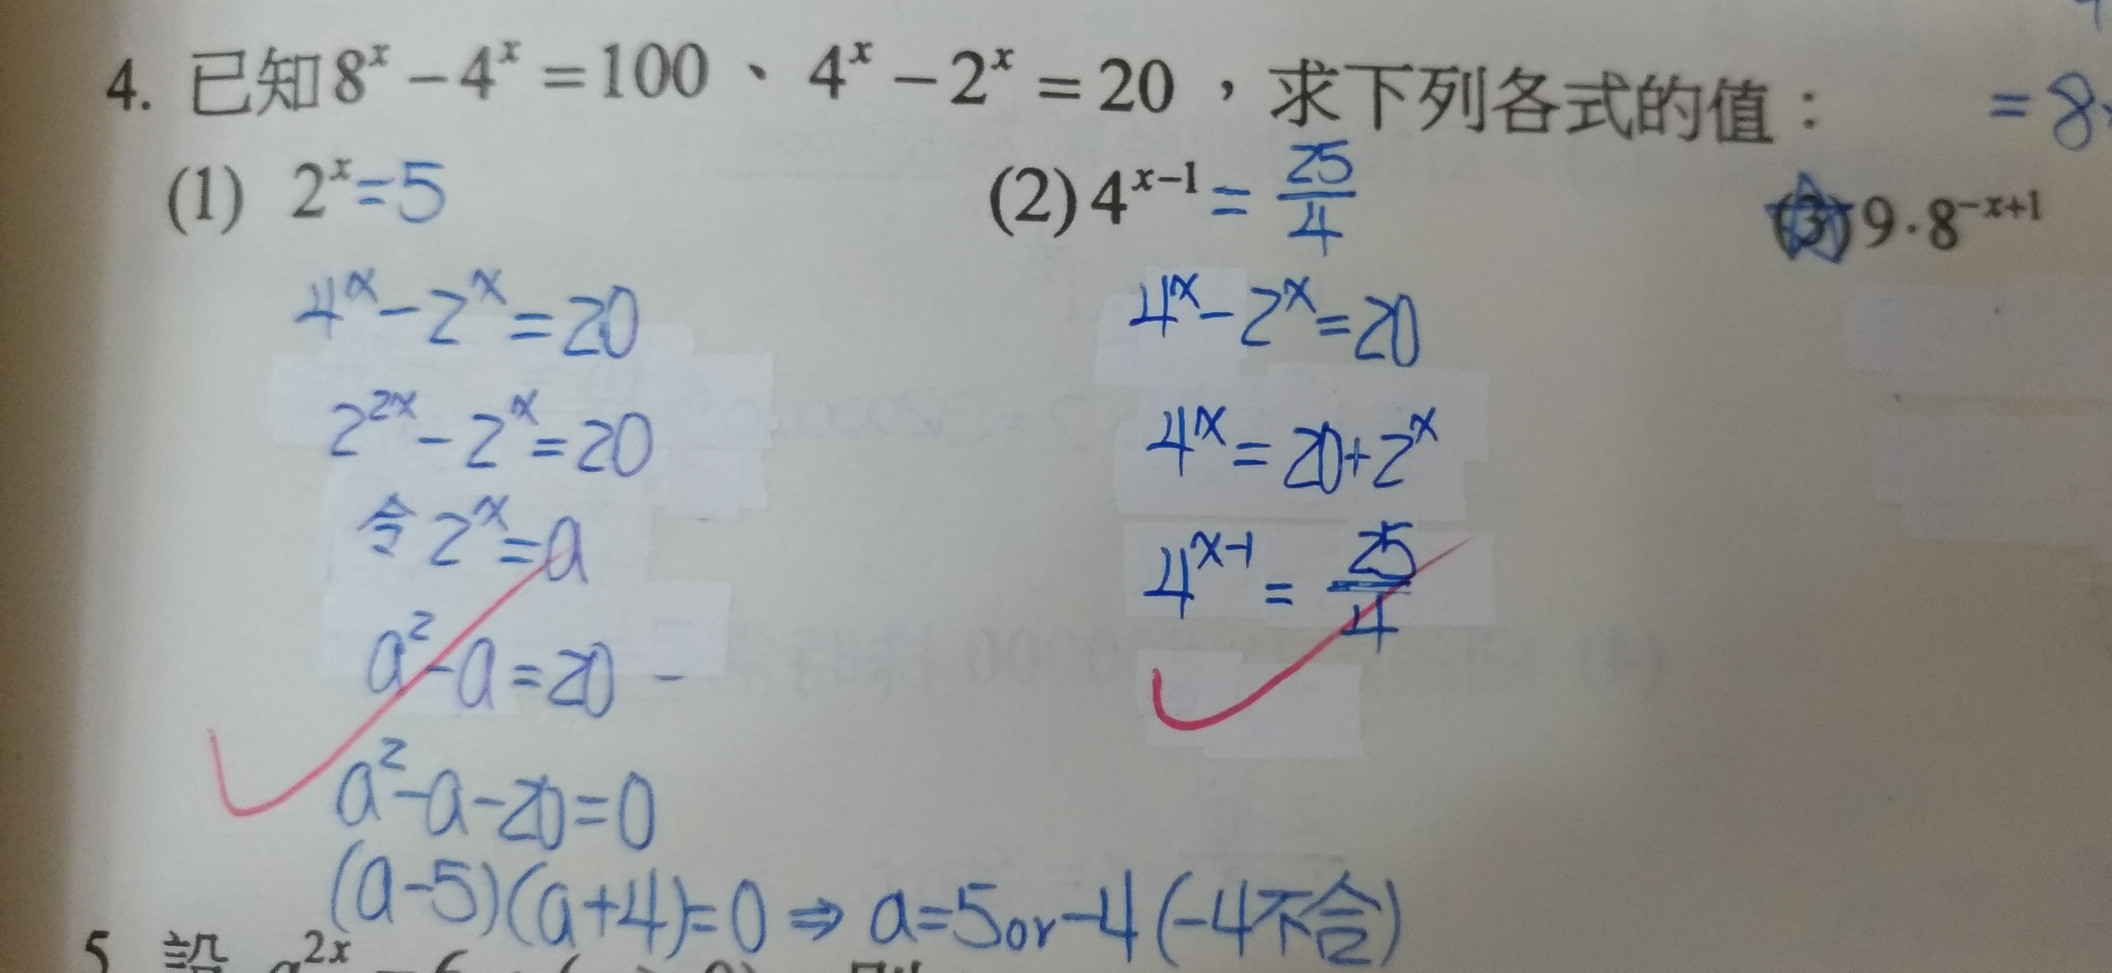 4. 已知 8^x − 4^x = 100、4^x − 2^x = 20，求下列各式的值：
= 8
(1) 2^x = 5
(2) 4^{x−1} = 25/4
(3) 9·8^{−x+1}
4^x − 2^x = 20
2^{2x} − 2^x = 20
令 2^x = a
a² − a = 20 −
a² − a − 20 = 0
(a−5)(a+4) = 0 ⇒ a = 5 or −4 (−4不合)
4^x − 2^x = 20
4^x = 20 + 2^x
4^{x−1} = 25/4
5 設